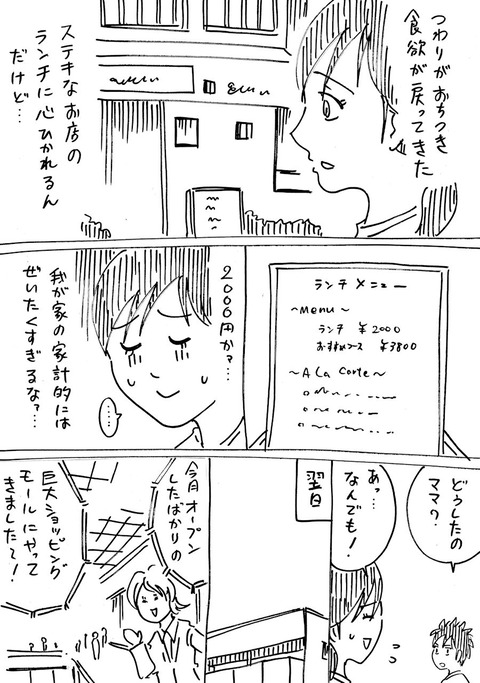 つわりがおちつき
食欲が戻ってきた
ステキなお店の
ランチに心ひかれるん
だけど…
ランチメニュー
~Menu~
ランチ ¥2000
おすすめコース ¥3800
~A La Carte~
2000円か?…
我が家の家計的には
ぜいたくすぎるな?…
……
どうしたの
ママ?
あっ…
なんでも!
翌日
今月オープン
したばかりの
巨大ショッピング
モールにやって
きました~!